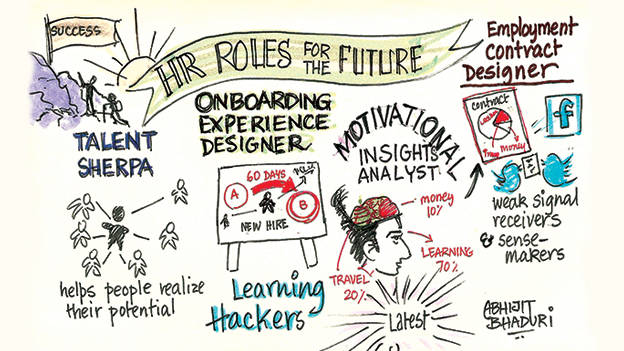 SUCCESS
HR ROLES FOR THE FUTURE
Employment
Contract
Designer
TALENT
SHERPA
helps people realize
their potential
ONBOARDING
EXPERIENCE
DESIGNER
60 DAYS
A
B
NEW HIRE
Learning
Hackers
MOTIVATIONAL
INSIGHTS
ANALYST
money
10%
LEARNING
70%
TRAVEL
20%
Latest
contract
money
f
weak signal
receivers
& sense-
makers
ABHIJIT
BHADURI